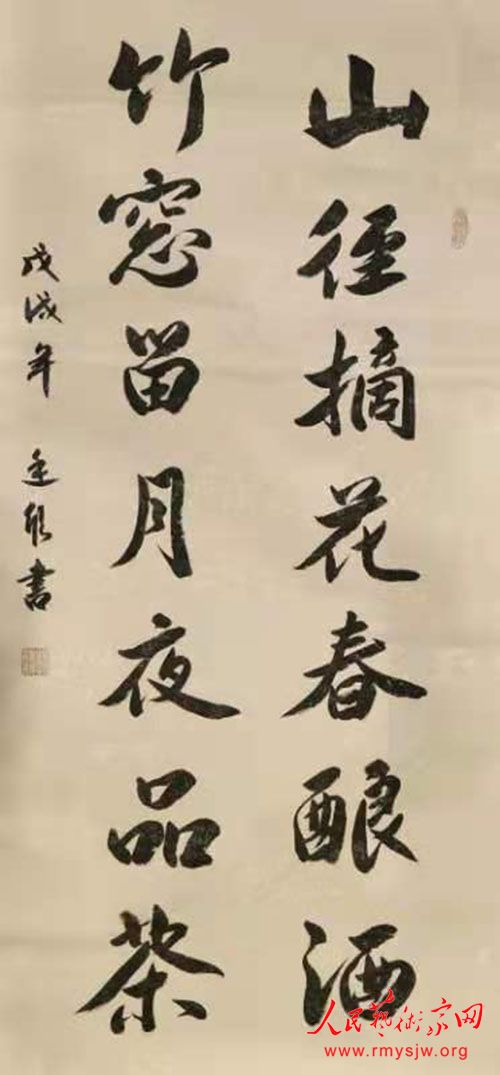 山径摘花春酿酒
竹窓留月夜品茶
戊戌年 書
人民藝術家网
www.rmysjw.org